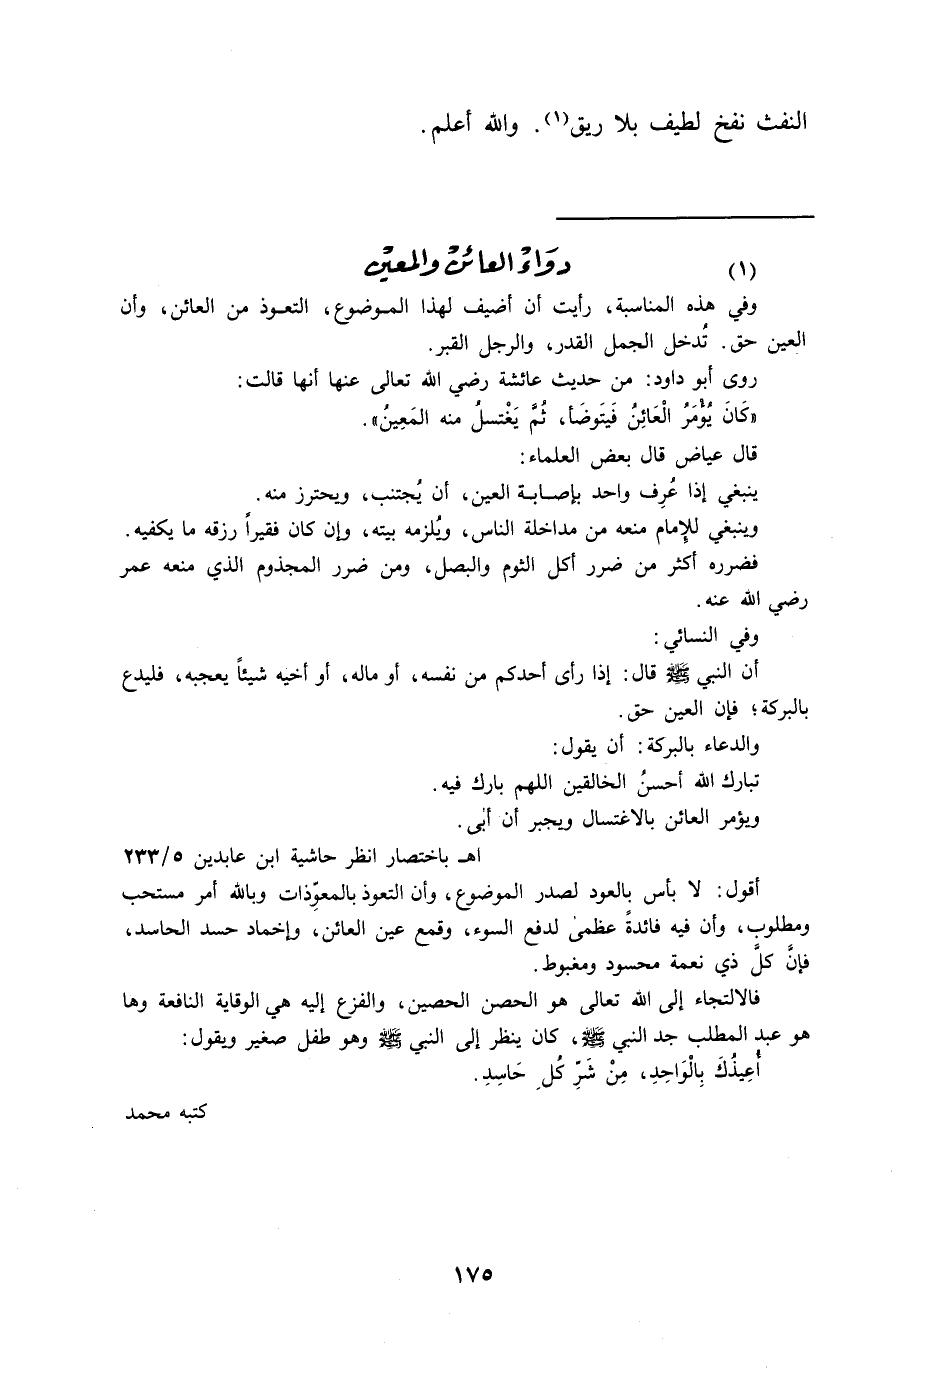 النفث نفخ لطيف بلا ريق(١). والله أعلم.
(١) دوَاءُ العائنْ والمعينْ
وفي هذه المناسبة، رأيت أن أضيف لهذا الموضوع، التعوذ من العائن، وأن
العين حق. تُدخل الجمل القدر، والرجل القبر.
روى أبو داود: من حديث عائشة رضي الله تعالى عنها أنها قالت:
«كَانَ يُؤْمَرُ الْعَائِنُ فَيَتَوضَأ، ثُمَّ يَغْتسلُ منه المَعِينُ».
قال عياض قال بعض العلماء:
ينبغي إذا عُرِف واحد بإصابة العين، أن يُجتنب، ويحترز منه.
وينبغي للإمام منعه من مداخلة الناس، ويُلزمه بيته، وإن كان فقيراً رزقه ما يكفيه.
فضرره أكثر من ضرر أكل الثوم والبصل، ومن ضرر المجذوم الذي منعه عمر
رضي الله عنه.
وفي النسائي:
أن النبي ﷺ قال: إذا رأى أحدكم من نفسه، أو ماله، أو أخيه شيئاً يعجبه، فليدع
بالبركة؛ فإن العين حق.
والدعاء بالبركة: أن يقول:
تبارك الله أحسنُ الخالقين اللهم بارك فيه.
ويؤمر العائن بالاغتسال ويجبر أن أبى.
اهـ باختصار انظر حاشية ابن عابدين ٢٣٣/٥
أقول: لا بأس بالعود لصدر الموضوع، وأن التعوذ بالمعوِّذات وبالله أمر مستحب
ومطلوب، وأن فيه فائدةً عظمىٰ لدفع السوء، وقمع عين العائن، وإخماد حسد الحاسد،
فإنَّ كلَّ ذي نعمة محسود ومغبوط.
فالالتجاء إلى الله تعالى هو الحصن الحصين، والفزع إليه هي الوقاية النافعة وها
هو عبد المطلب جد النبي ﷺ، كان ينظر إلى النبي ﷺ وهو طفل صغير ويقول:
أُعِيذُكَ بِالْوَاحِدِ، مِنْ شَرِّ كُلِ حَاسِدِ.
كتبه محمد
١٧٥